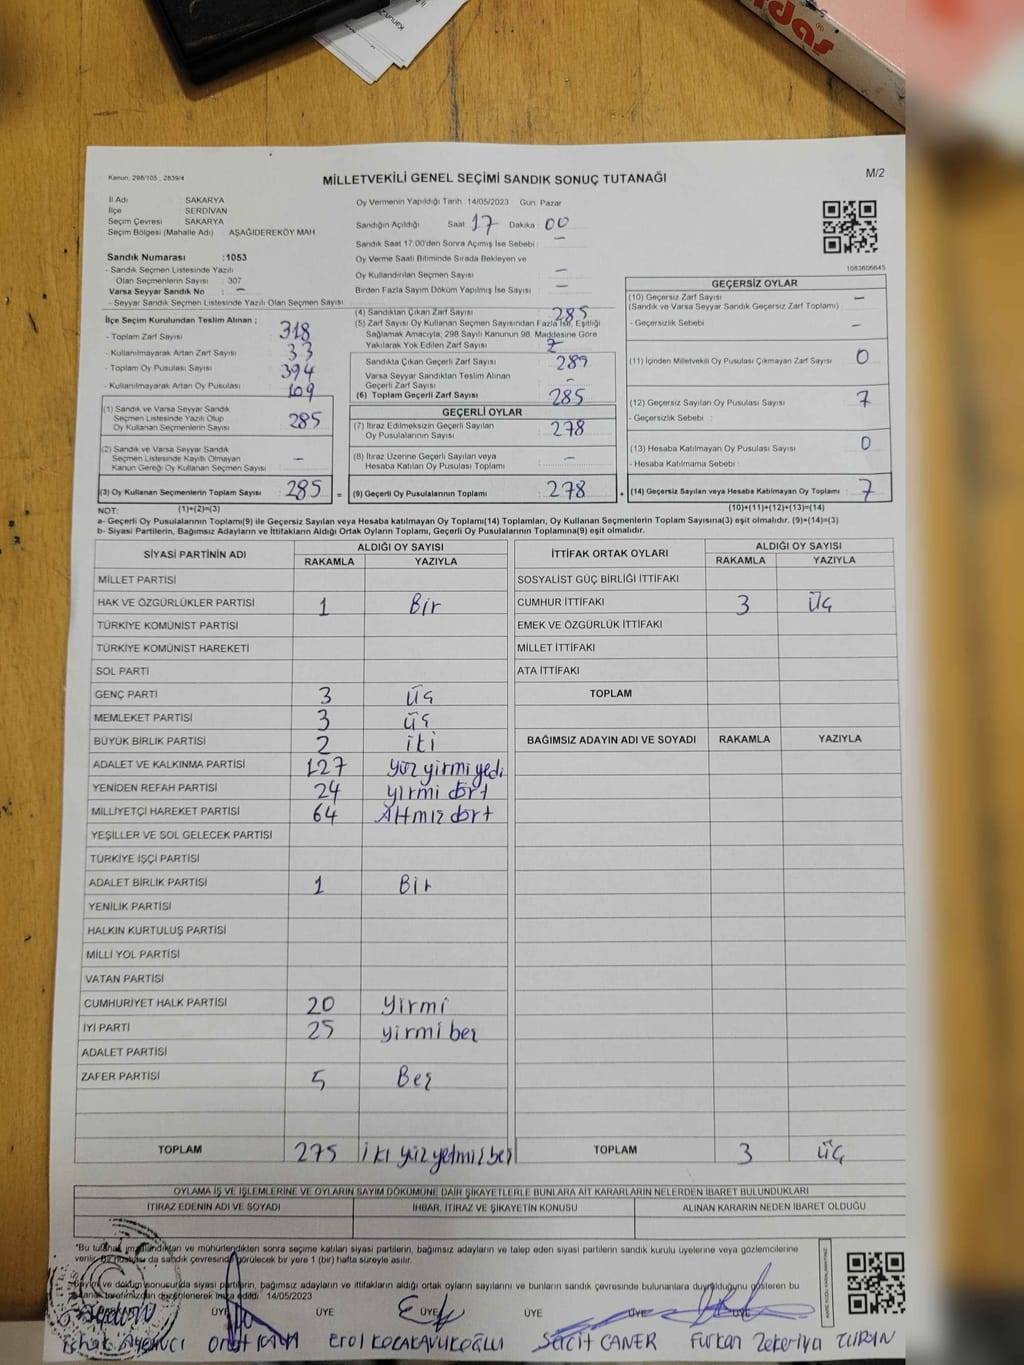 das
Kanun: 298/105 , 2839/4
MİLLETVEKİLİ GENEL SEÇİMİ SANDIK SONUÇ TUTANAĞI
M/2
İl Adı SAKARYA
İlçe SERDİVAN
Seçim Çevresi SAKARYA
Seçim Bölgesi (Mahalle Adı) AŞAĞIDEREKÖY MAH
Sandık Numarası :1053
- Sandık Seçmen Listesinde Yazılı
Olan Seçmenlerin Sayısı : 307
Varsa Seyyar Sandık No : –
- Seyyar Sandık Seçmen Listesinde Yazılı Olan Seçmen Sayısı:
Oy Vermenin Yapıldığı Tarih :14/05/2023 Gün: Pazar
Sandığın Açıldığı Saat 17 Dakika 00
Sandık Saat 17:00'den Sonra Açımış İse Sebebi : –
Oy Verme Saati Bitiminde Sırada Bekleyen ve
Oy Kullandırılan Seçmen Sayısı : –
Birden Fazla Sayım Döküm Yapılmış İse Sayısı : –
1083606645
İlçe Seçim Kurulundan Teslim Alınan ;
- Toplam Zarf Sayısı : 318
- Kullanılmayarak Artan Zarf Sayısı : 33
- Toplam Oy Pusulası Sayısı : 394
- Kullanılmayarak Artan Oy Pusulası : 109
(1) Sandık ve Varsa Seyyar Sandık
Seçmen Listesinde Yazılı Olup
Oy Kullanan Seçmenlerin Sayısı : 285
(2) Sandık ve Varsa Seyyar Sandık
Seçmen Listesinde Kayıtlı Olmayan
Kanun Gereği Oy Kullanan Seçmen Sayısı : –
(3) Oy Kullanan Seçmenlerin Toplam Sayısı : 285 =
(1)+(2)=(3)
(4) Sandıktan Çıkan Zarf Sayısı : 285
(5) Zarf Sayısı Oy Kullanan Seçmen Sayısından Fazla İse, Eşitliği
Sağlamak Amacıyla; 298 Sayılı Kanunun 98. Maddesine Göre
Yakılarak Yok Edilen Zarf Sayısı :
Sandıkta Çıkan Geçerli Zarf Sayısı :
Varsa Seyyar Sandıktan Teslim Alınan
Geçerli Zarf Sayısı : –
(6) Toplam Geçerli Zarf Sayısı : 285
GEÇERLİ OYLAR
(7) İtiraz Edilmeksizin Geçerli Sayılan
Oy Pusulalarının Sayısı : 278
(8) İtiraz Üzerine Geçerli Sayılan veya
Hesaba Katılan Oy Pusulası Toplamı : –
(9) Geçerli Oy Pusulalarının Toplamı : 278 +
GEÇERSİZ OYLAR
(10) Geçersiz Zarf Sayısı : –
(Sandık ve Varsa Seyyar Sandık Geçersiz Zarf Toplamı)
- Geçersizlik Sebebi : –
(11) İçinden Milletvekili Oy Pusulası Çıkmayan Zarf Sayısı : 0
(12) Geçersiz Sayılan Oy Pusulası Sayısı : 7
- Geçersizlik Sebebi :
(13) Hesaba Katılmayan Oy Pusulası Sayısı : 0
- Hesaba Katılmama Sebebi :
(14) Geçersiz Sayılan veya Hesaba Katılmayan Oy Toplamı : 7
(10)+(11)+(12)+(13)=(14)
NOT:
a- Geçerli Oy Pusulalarının Toplamı(9) ile Geçersiz Sayılan veya Hesaba katılmayan Oy Toplamı(14) Toplamları, Oy Kullanan Seçmenlerin Toplam Sayısına(3) eşit olmalıdır. (9)+(14)=(3)
b- Siyasi Partilerin, Bağımsız Adayların ve İttifakların Aldığı Ortak Oyların Toplamı, Geçerli Oy Pusulalarının Toplamına(9) eşit olmalıdır.
SİYASİ PARTİNİN ADI ALDIĞI OY SAYISI
RAKAMLA YAZIYLA
MİLLET PARTİSİ
HAK VE ÖZGÜRLÜKLER PARTİSİ 1 Bir
TÜRKİYE KOMÜNİST PARTİSİ
TÜRKİYE KOMÜNİST HAREKETİ
SOL PARTİ
GENÇ PARTİ 3 Üç
MEMLEKET PARTİSİ 3 üç
BÜYÜK BİRLİK PARTİSİ 2 iki
ADALET VE KALKINMA PARTİSİ 127 yüz yirmi yedi
YENİDEN REFAH PARTİSİ 24 yirmi dört
MİLLİYETÇİ HAREKET PARTİSİ 64 Altmış dört
YEŞİLLER VE SOL GELECEK PARTİSİ
TÜRKİYE İŞÇİ PARTİSİ
ADALET BİRLİK PARTİSİ 1 Bir
YENİLİK PARTİSİ
HALKIN KURTULUŞ PARTİSİ
MİLLİ YOL PARTİSİ
VATAN PARTİSİ
CUMHURİYET HALK PARTİSİ 20 Yirmi
İYİ PARTİ 25 yirmi beş
ADALET PARTİSİ
ZAFER PARTİSİ 5 Beş
TOPLAM 275 iki yüz yetmiş beş
İTTİFAK ORTAK OYLARI ALDIĞI OY SAYISI
RAKAMLA YAZIYLA
SOSYALİST GÜÇ BİRLİĞİ İTTİFAKI
CUMHUR İTTİFAKI 3 Üç
EMEK VE ÖZGÜRLÜK İTTİFAKI
MİLLET İTTİFAKI
ATA İTTİFAKI
TOPLAM
BAĞIMSIZ ADAYIN ADI VE SOYADI RAKAMLA YAZIYLA
TOPLAM 3 üç
OYLAMA İŞ VE İŞLEMLERİNE VE OYLARIN SAYIM DÖKÜMÜNE DAİR ŞİKAYETLERLE BUNLARA AİT KARARLARIN NELERDEN İBARET BULUNDUKLARI
İTİRAZ EDENİN ADI VE SOYADI İHBAR, İTİRAZ VE ŞİKAYETİN KONUSU ALINAN KARARIN NEDEN İBARET OLDUĞU
"Bu tutanak imzalandıktan ve mühürlendikten sonra seçime katılan siyasi partilerin, bağımsız adayların ve talep eden siyasi partilerin sandık kurulu üyelerine veya gözlemcilerine
da sandık çevresinde görülecek bir yere 1 (bir) hafta süreyle asılır.
Sayım ve döküm sonucunda siyasi partilerin, bağımsız adayların ve ittifakların aldığı ortak oyların sayılarını ve bunların sandık çevresinde bulunanlara duyrulduğunu gösteren bu
tutanak tarafımızdan düzenlenerek imza edildi. 14/05/2023
ÜYE ÜYE ÜYE ÜYE ÜYE ÜYE
Erol KOCAKAVUKOĞLU Sacit CANER Furkan Zekeriya TURAN